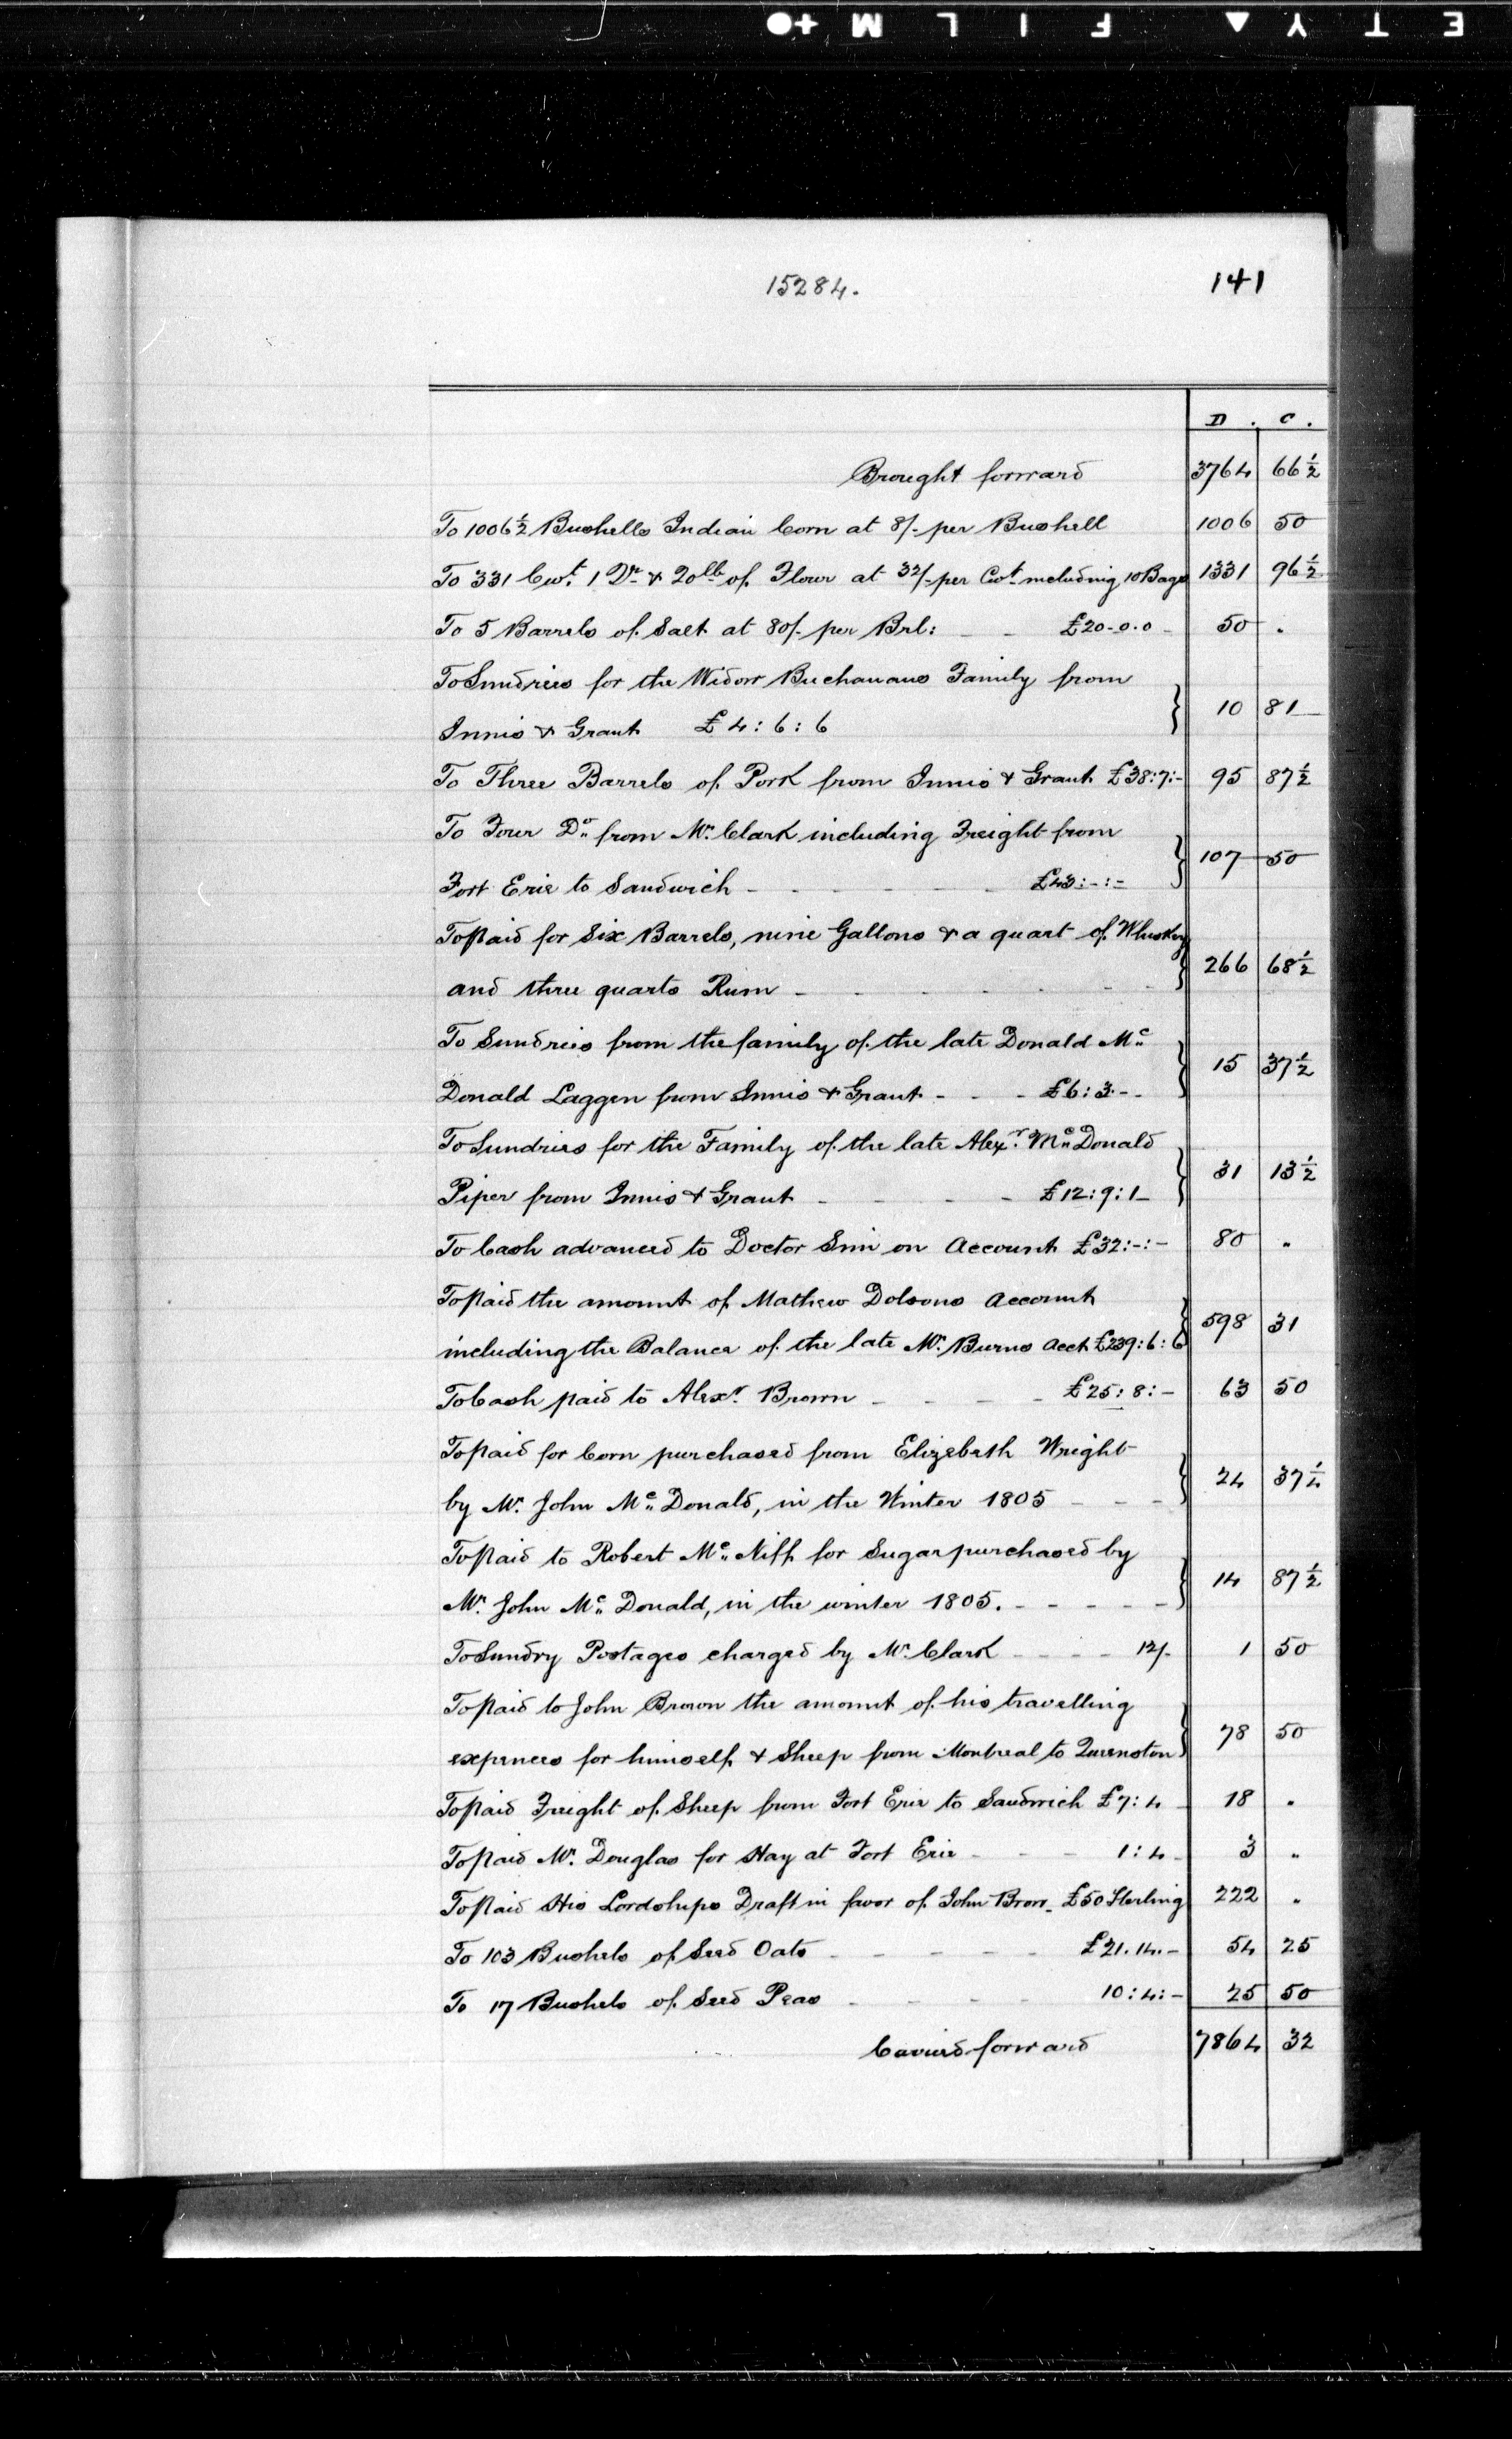 E T Y ▲ F I L M
15284.
141
D . C .
Brought forward 3764 66½
To 1006½ Bushells Indian Corn at 8/- per Bushell 1006 50
To 331 Cwt. 1 Qr. & 20lb of Flour at 32/- per Cwt including 10 Bags 1331 96½
To 5 Barrels of Salt at 80/- per Brl: £20-0.0 50 .
To Sundries for the Widow Buchanans Family from
Innis & Grant £4:6:6 10 81
To Three Barrels of Pork from Innis & Grant £38:7:- 95 87½
To Four Do. from Mr. Clark including Freight from
Fort Erie to Sandwich - - - - - £43:-:- 107 50
To paid for Six Barrels, nine Gallons & a quart of Whiskey
and three quarts Rum - - - - - 266 68½
To Sundries from the family of the late Donald Mc
Donald Laggen from Innis & Grant - - - £6:3-- 15 37½
To Sundries for the Family of the late Alexr. Mc Donald
Piper from Innis & Grant - - - - £12:9:1- 31 13½
To Cash advanced to Doctor Sim on Account £32:-:- 80 "
To paid the amount of Mathew Dolsons Account
including the Balance of the late Mr. Burns Acct £239:6:6 598 31
To Cash paid to Alexr. Brown - - - - £25:8:- 63 50
To paid for Corn purchased from Elizabeth Wright
by Mr. John Mc Donald, in the Winter 1805 - - - 24 37¼
To paid to Robert Mc Niff for Sugar purchased by
Mr. John Mc Donald, in the winter 1805. - - - - - 14 87½
To Sundry Postages charged by Mr. Clark - - - - 12/- 1 50
To paid to John Brown the amount of his travelling
expences for himself & Sheep from Montreal to Queenston 78 50
To paid Freight of Sheep from Fort Erie to Sandwich £7:4 18 .
To paid Mr. Douglas for Hay at Fort Erie - - - 1:4- 3 "
To paid His Lordships Draft in favor of John Brow_ £50 Sterling 222 "
To 103 Bushels of Seed Oats - - - - - £21.14.- 54 25
To 17 Bushels of Seed Peas - - - - 10:4:- 25 50
Carried forward 7864 32